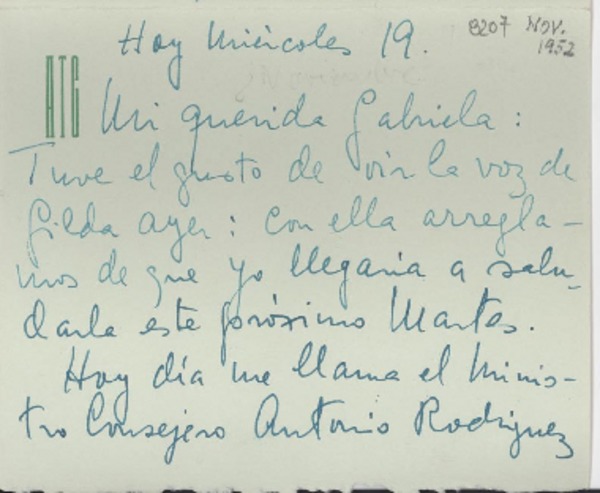 Hoy Miércoles 19.
8207 NOV.
1952
ATG
Mi querida Gabriela:
Tuve el gusto de oír la voz de
Gilda ayer: con ella arregla-
mos de que yo llegaria a salu-
darla este próximo Martes.
Hoy día me llama el Minis-
tro Consejero Antonio Rodriguez